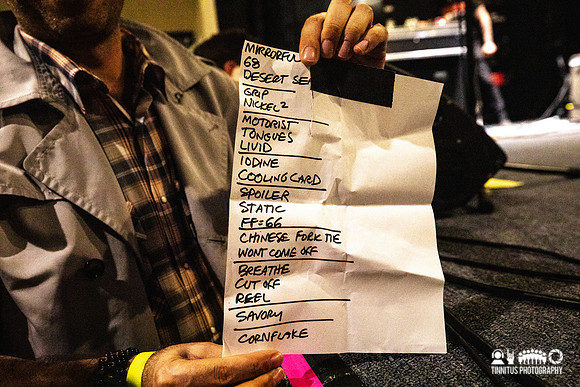 MIRRORFUL
68
DESERT SEA
GRIP
NICKEL²
MOTORIST
TONGUES
LIVID
IODINE
COOLING CARD
SPOILER
STATIC
FF=66
CHINESE FORK TIE
WONT COME OFF
BREATHE
CUT OFF
REEL
SAVORY
CORNFLAKE
TINNITUS PHOTOGRAPHY